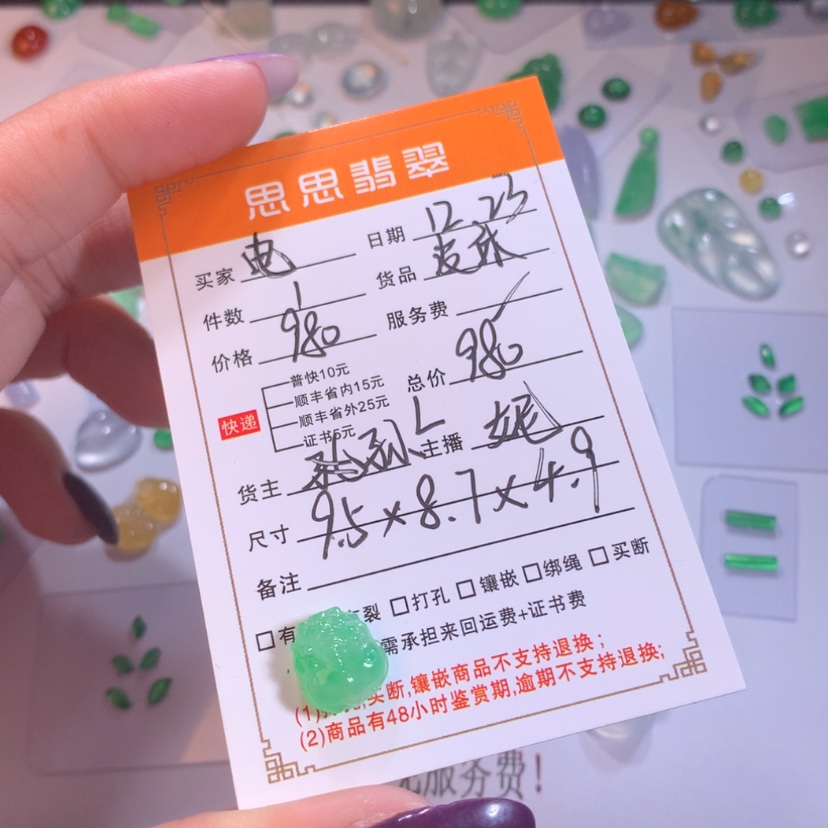 思思翡翠
买家 日期 12.23
件数 1 货品
价格 980 服务费
普快10元
顺丰省内15元
快递 顺丰省外25元 总价 980
证书5元
货主 主播 妮
尺寸 9.5×8.7×4.9
备注
□有 裂 □打孔 □镶嵌 □绑绳 □买断
需承担来回运费+证书费
(1) 买断,镶嵌商品不支持退换；
(2)商品有48小时鉴赏期,逾期不支持退换;
服务费！